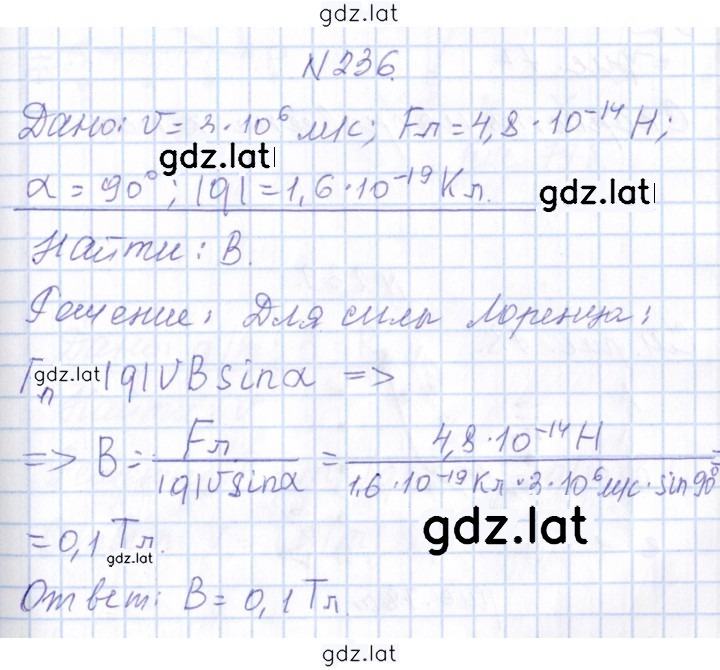 gdz.lat
N 236.
Дано: v = 3·10⁶ м/с; Fл = 4,8·10⁻¹⁴ Н;
gdz.lat
α = 90°; |q| = 1,6·10⁻¹⁹ Кл. gdz.lat
Найти: B.
Решение: Для силы Лоренца:
Fл gdz.lat |q|vB sinα =>
=> B = Fл / |q|v sinα = 4,8·10⁻¹⁴ Н / 1,6·10⁻¹⁹ Кл·3·10⁶ м/с·sin 90° =
= 0,1 Тл. gdz.lat
gdz.lat
Ответ: B = 0,1 Тл.
gdz.lat